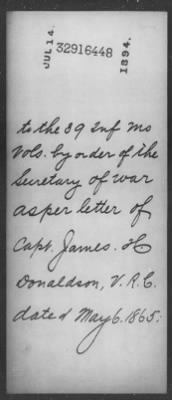 JUL 14. 32916448 1894.
to the 39 Inf Mo
Vols. by order of the
Secretary of War
as per letter of
Capt. James. H
Donaldson, V. R. C.
dated May 6. 1865.